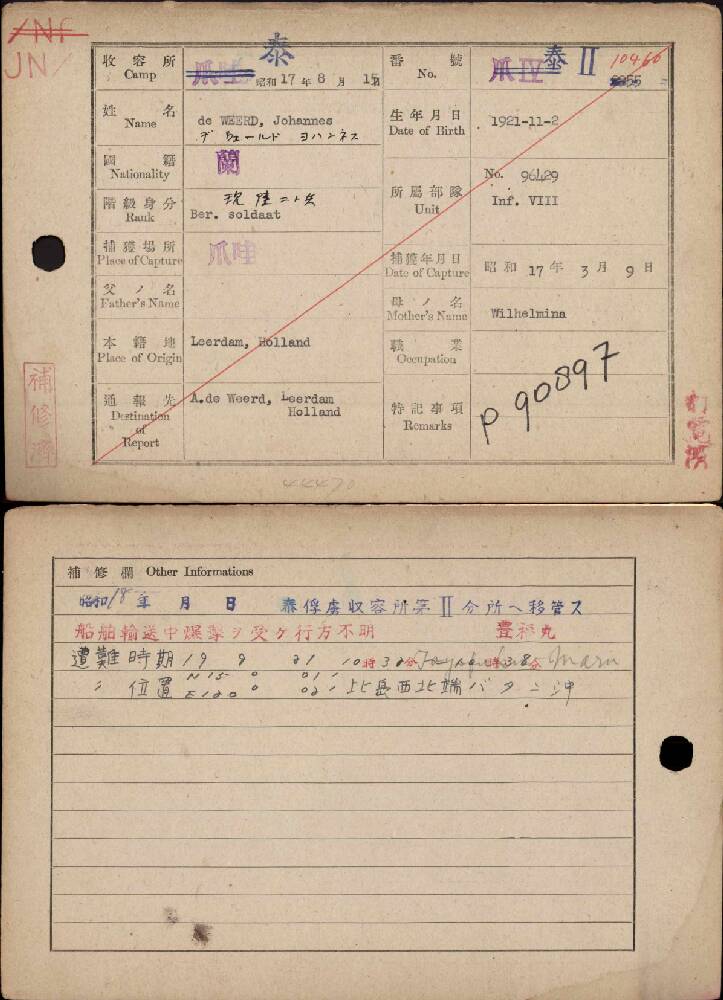 JN
收容所 Camp 爪哇 泰 昭和17年8月15日
番號 No. 爪IV 泰II 10466
姓名 Name de WEERD, Johannes
デ ウェールド ヨハンネス
生年月日 Date of Birth 1921-11-2
國籍 Nationality 蘭
階級身分 Rank Ber. soldaat
所屬部隊 Unit No. 96429
Inf. VIII
捕獲場所 Place of Capture 爪哇
捕獲年月日 Date of Capture 昭和 17年 3月 9日
父ノ名 Father's Name
母ノ名 Mother's Name Wilhelmina
本籍地 Place of Origin Leerdam, Holland
職業 Occupation
通報先 Destination of Report A.de Weerd, Leerdam
Holland
特記事項 Remarks P 90897
補修濟
44470
補修欄 Other Informations
昭和18年 月 日 泰俘虜収容所第II分所へ移管ス
船舶輸送中爆撃ヲ受ケ行方不明 豊福丸
遭難時期 19 9 21 10時3 分 Maru
〃 位置 N15° 01′
E120° 02′ 比島西北端バタン沖